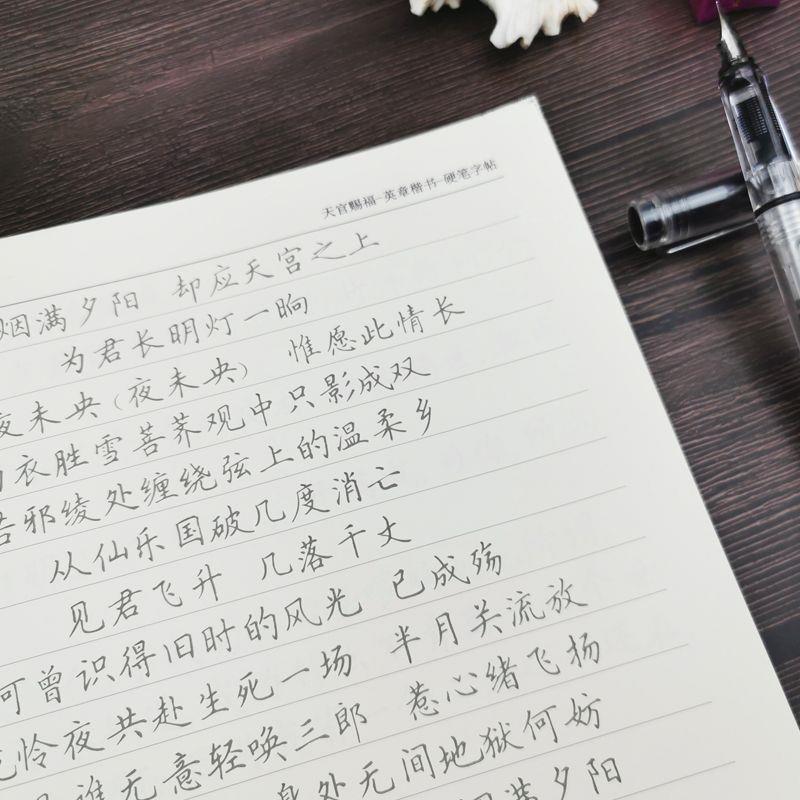 天官赐福-英章楷书-硬笔字帖
烟满夕阳 却应天宫之上
为君长明灯一晌
夜未央(夜未央) 惟愿此情长
衣胜雪菩荠观中只影成双
若邪绫处缠绕弦上的温柔乡
从仙乐国破几度消亡
见君飞升 几落千丈
可曾识得旧时的风光 已成殇
怜夜共赴生死一场 半月关流放
谁无意轻唤三郎 惹心绪飞扬
身处无间地狱何妨
烟满夕阳